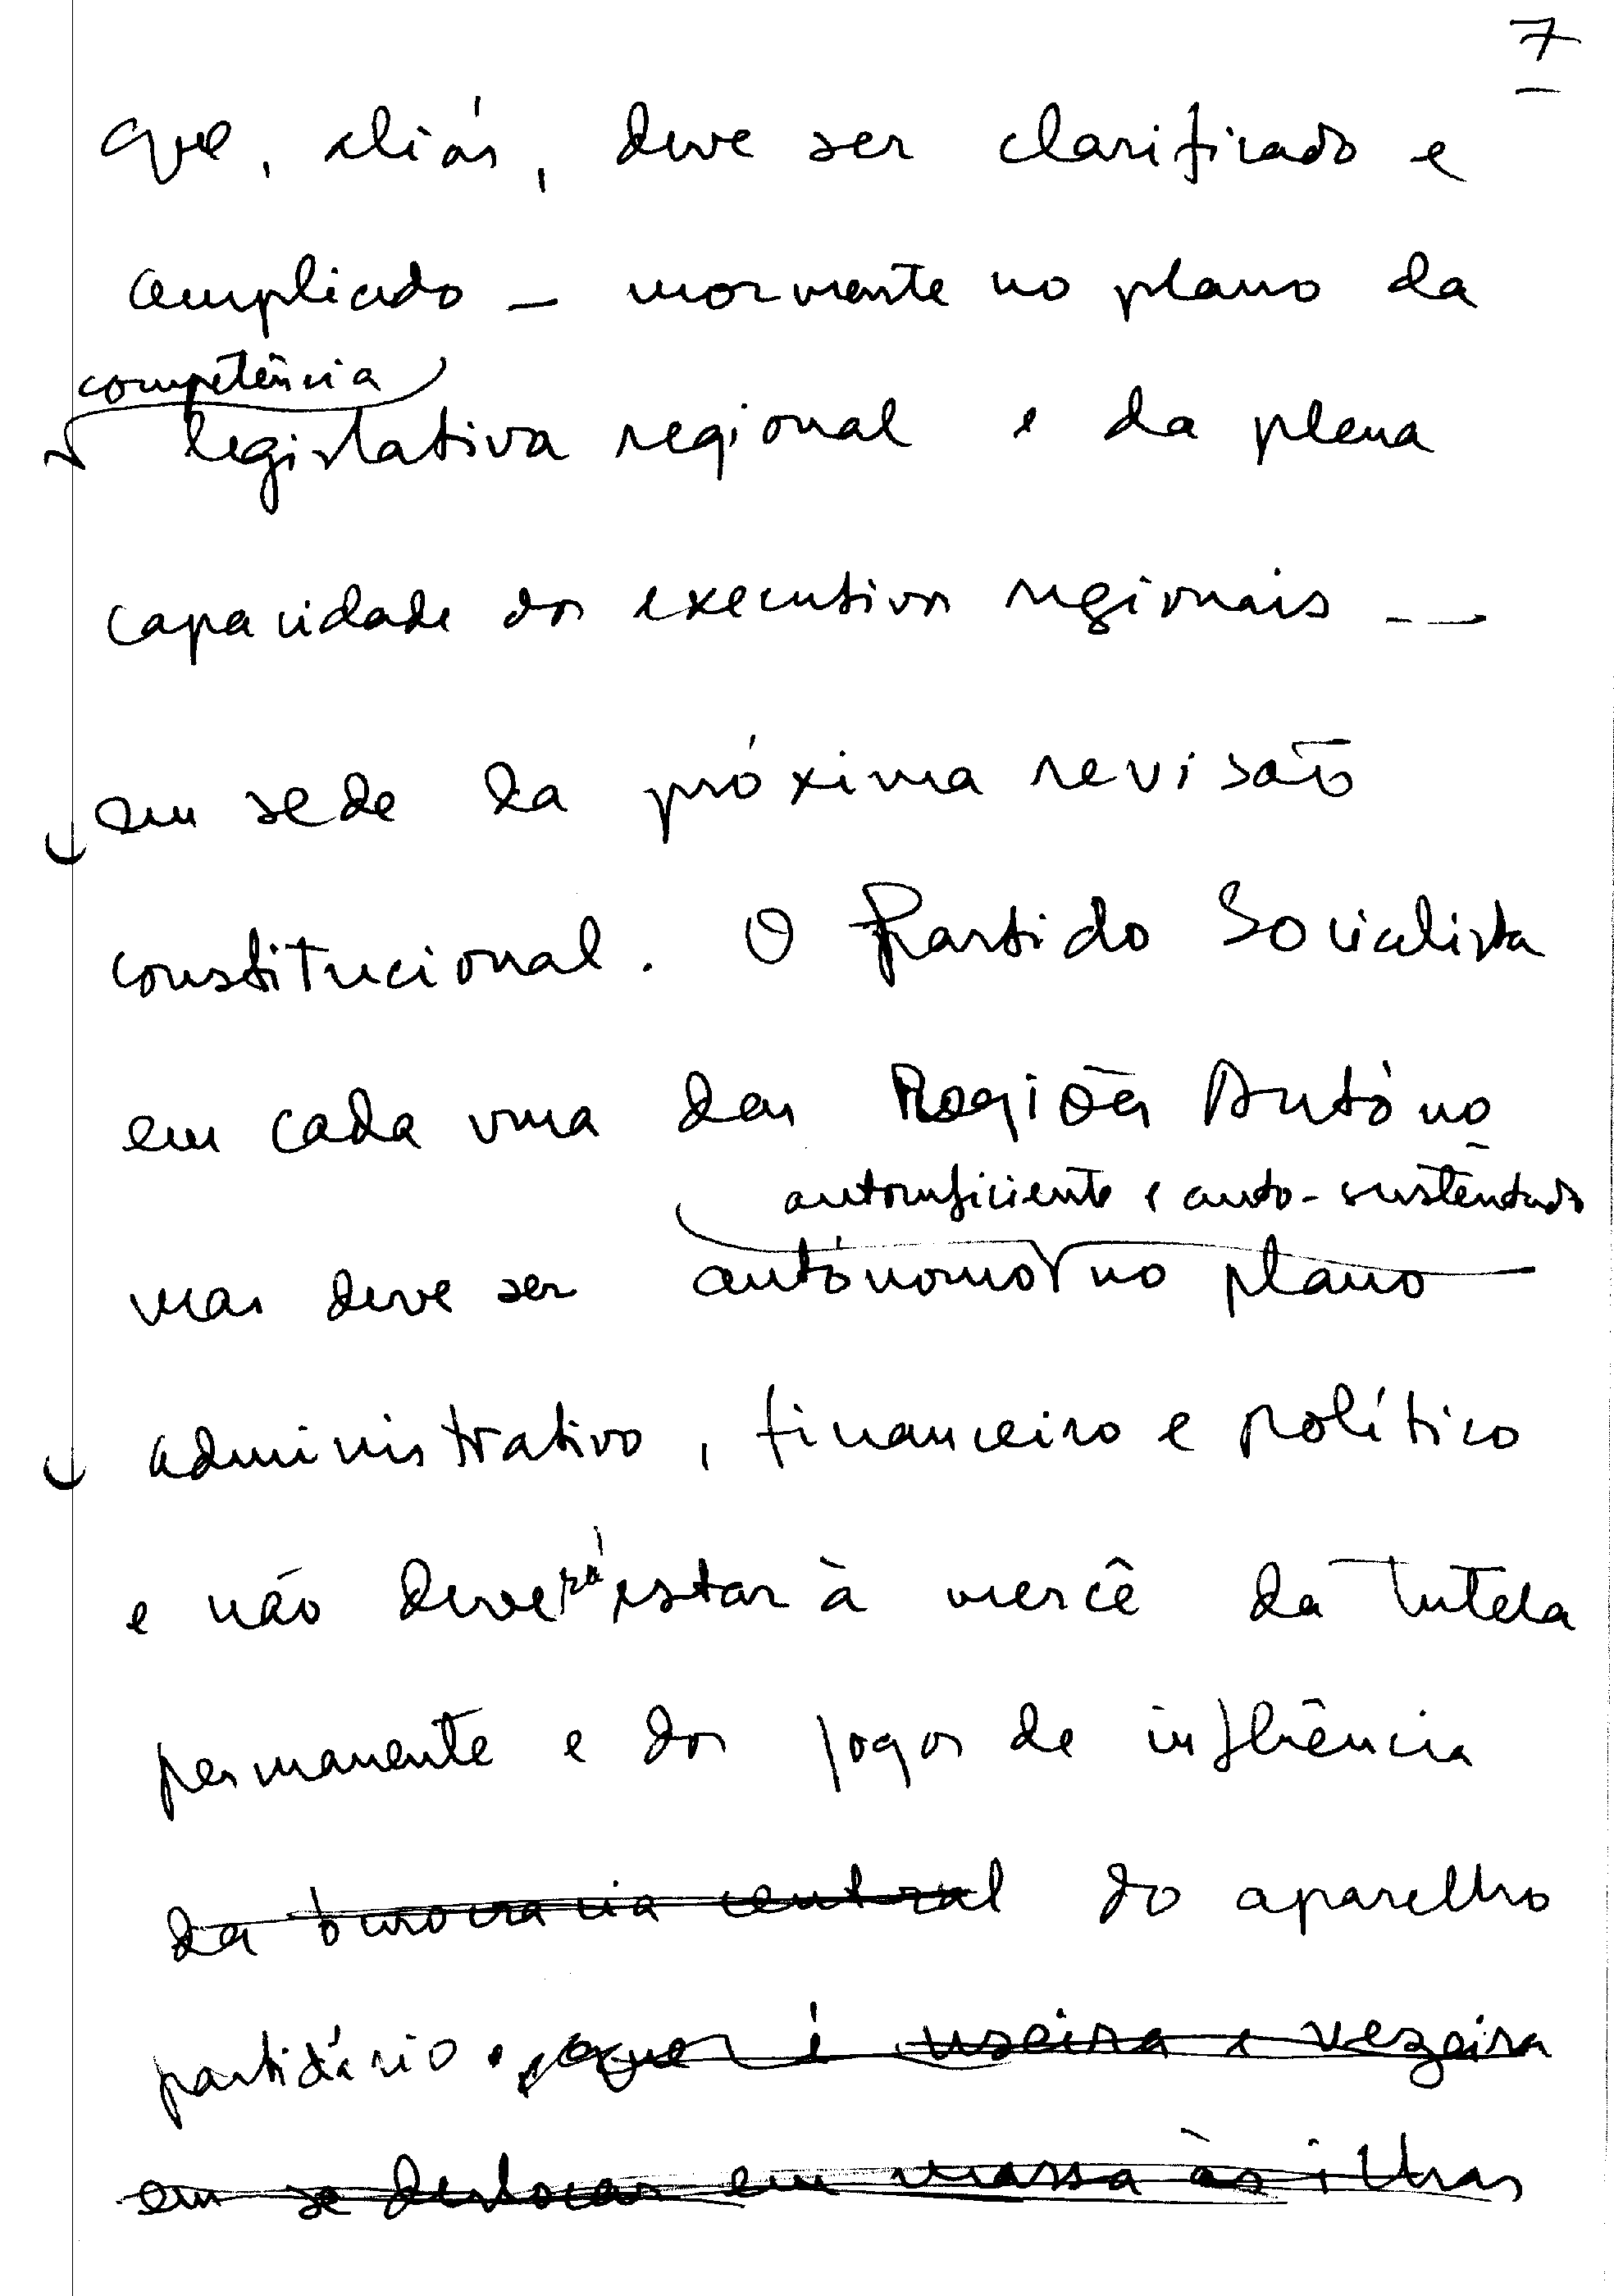 7
que, aliás, deve ser clarificado e
ampliado - mormente no plano da
competência
legislativa regional e da plena
capacidade dos executivos regionais --
em sede da próxima revisão
constitucional. O Partido Socialista
em cada uma das Regiões Autóno
autosuficiente e auto-sustentado
mas deve ser autónomo no plano
administrativo, financeiro e político
e não deverá estar à mercê da tutela
permanente e dos jogos de influência
da burocracia central do aparelho
partidário. que é useira e vezeira
em se deslocar em massa às ilhas